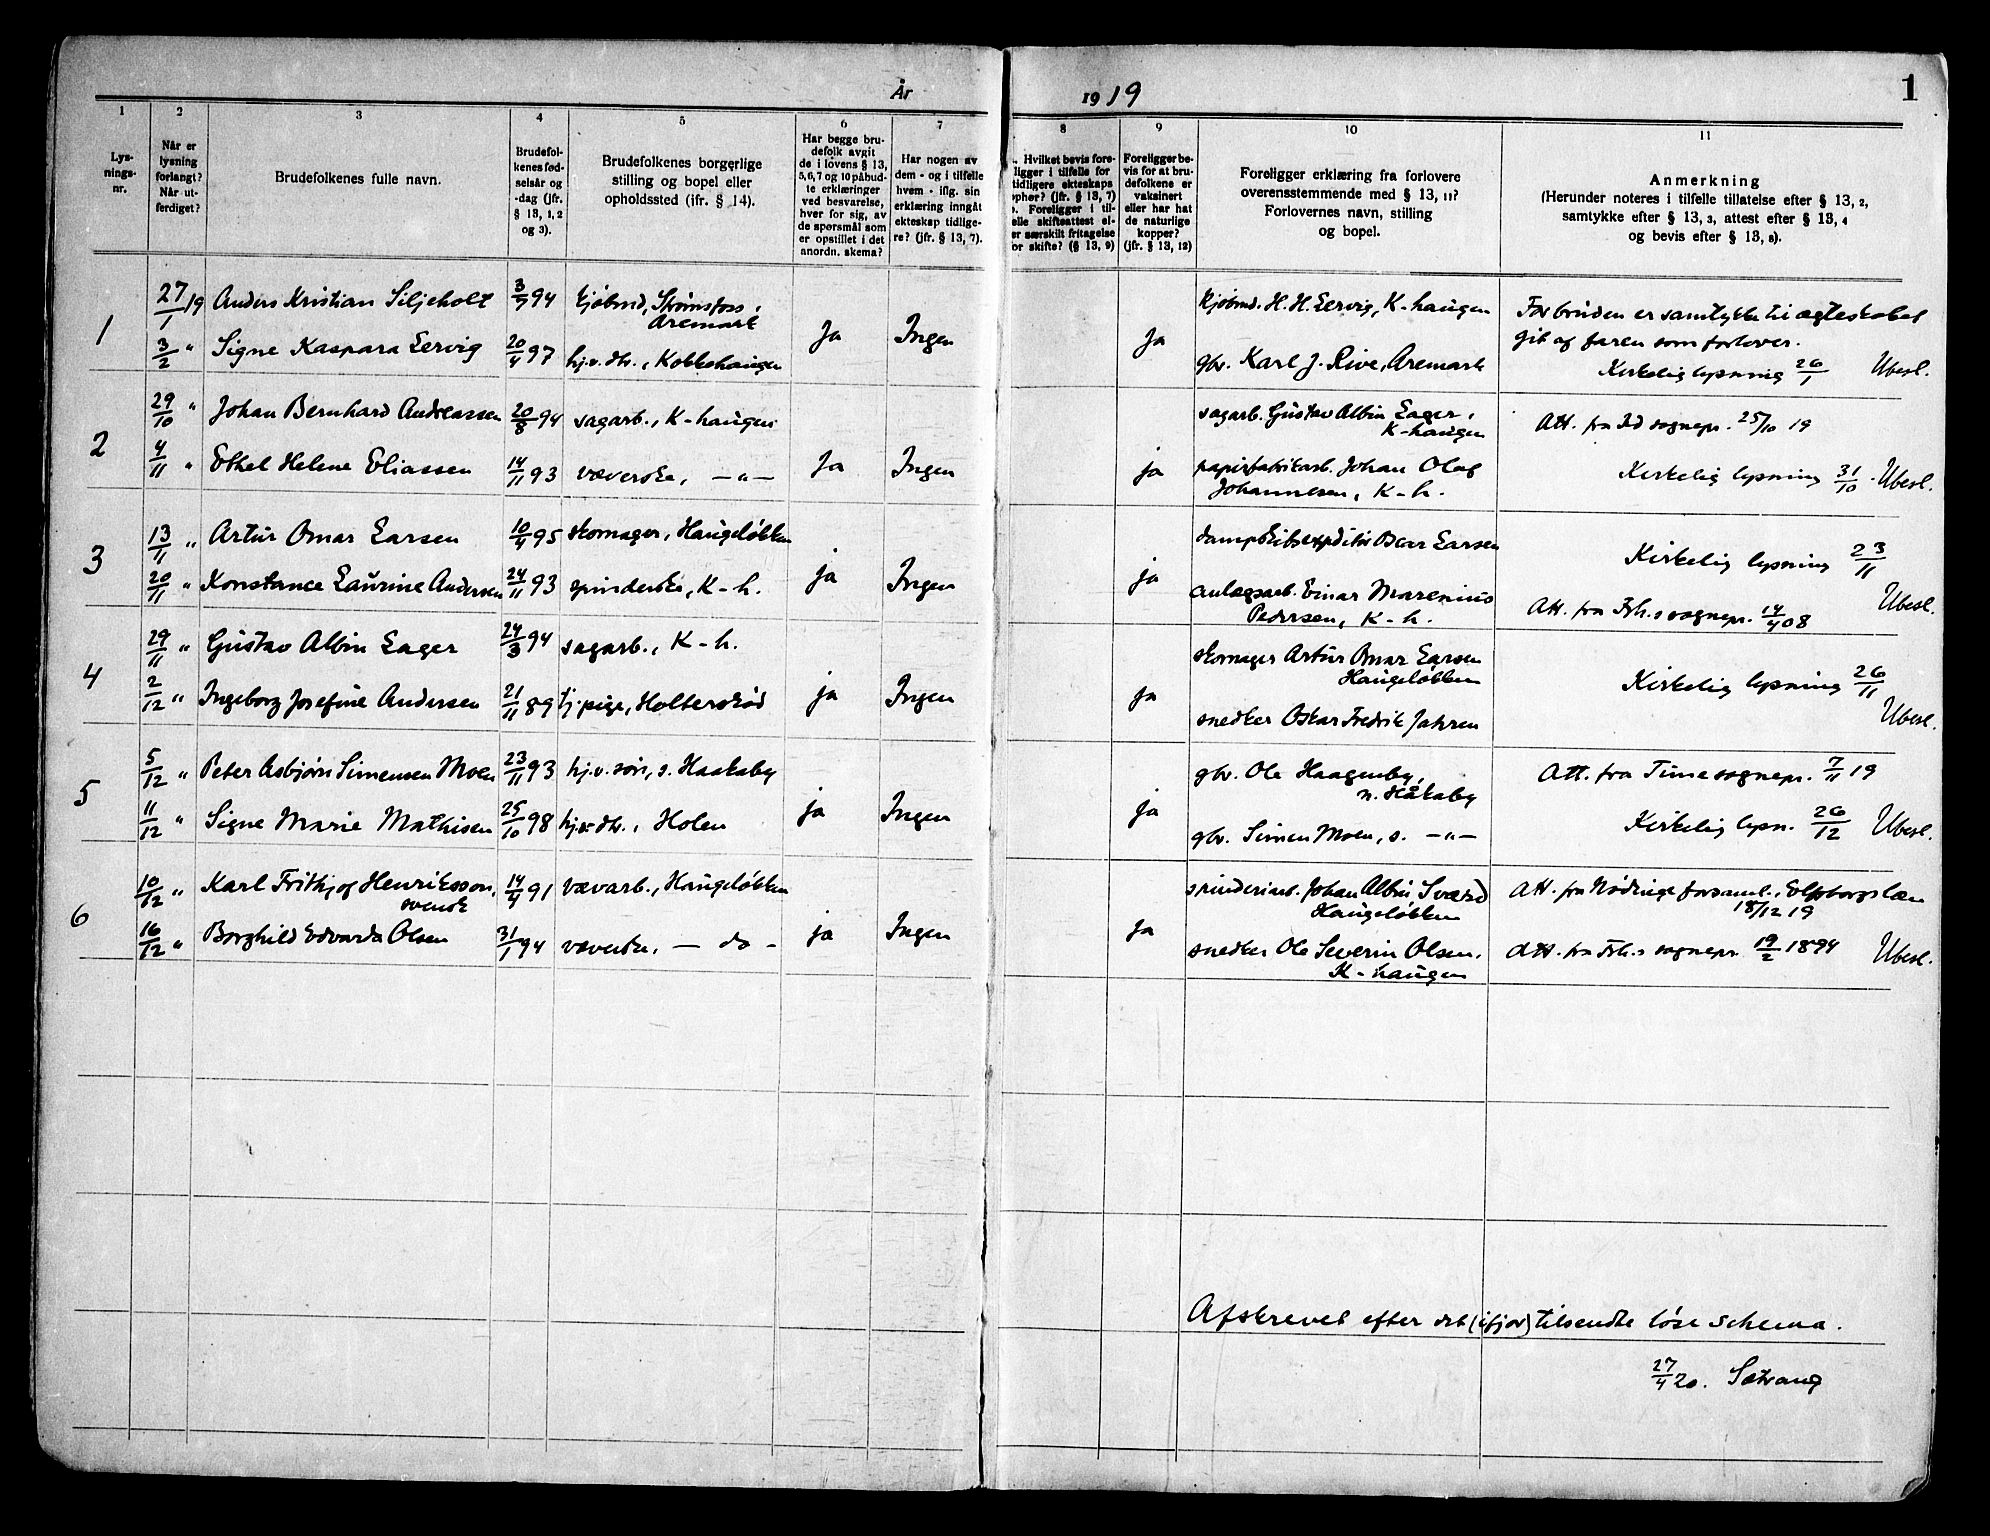 År 1919
1
1 2 3 4 5 6 7 8 9 10 11
Lys-
nings-
nr.
Når er
lysning
forlangt?
Når ut-
ferdiget?
Brudefolkenes fulle navn.
Brudefol-
kenes fød-
selsår og
-dag (jfr.
§ 13, 1, 2
og 3).
Brudefolkenes borgerlige
stilling og bopel eller
opholdssted (jfr. § 14).
Har begge bru-
defolk avgit
de i lovens § 13,
5, 6, 7 og 10 påbud-
te erklæringer
ved besvarelse,
hver for sig, av
de spørsmål som
er opstillet i det
anordn. skema?
Har nogen av
dem - og i tilfelle
hvem - iflg. sin
erklæring inngåt
ekteskap tidlige-
re? (jfr. § 13, 7).
Hvilket bevis fore-
ligger i tilfelle for
tidligere ekteskaps
ophør? (jfr. § 13, 7)
Foreligger i til-
elle skifteattest el-
er særskilt fritagelse
for skifte? (§ 13, 9)
Foreligger be-
vis for at bru-
defolkene er
vaksinert
eller har hat
de naturlige
kopper?
(jfr. § 13, 12)
Foreligger erklæring fra forlovere
overensstemmende med § 13, 11?
Forlovernes navn, stilling
og bopel.
Anmerkning
(Herunder noteres i tilfelle tillatelse efter § 13, 2,
samtykke efter § 13, 3, attest efter § 13, 4
og bevis efter § 13, 8).
1
27/1 19 Anders Kristian Siljeholt 3/7 94 kjøbmd, Strømsfoss, Aremark
3/2 " Signe Kaspara Lervig 20/4 97 hj.v. dtr., Kokkehaugen
Ja Ingen Ja
kjøbmd. H. H. Lervig, K-haugen
gbr. Karl J. Rive, Aremark
For bruden er samtykke til ægteskabet
git af faren som forlover.
Kirkelig lysning 26/1 Ubesl.
2
29/10 " Johan Bernhard Andreassen 20/8 94 sagarb., K-haugen
4/11 " Ethel Helene Eliassen 14/11 93 væverske, — " —
Ja Ingen ja
sagarb. Gustav Albin Lager, K-haugen
papirfabrikarb. Johan Olaf
Johannesen, K-h.
Att. fra Id sognepr. 25/10 19
Kirkelig lysning 31/10. Ubesl.
3
13/11 " Artur Omar Larsen 10/4 95 skomager, Haugeløkken
20/11 " Konstance Laurine Andersen 24/11 93 spinderske, K-h.
ja Ingen ja
dampskibsexpeditør Oscar Larsen
anlægsarb. Einar Marenius
Pedersen, K-h.
Kirkelig lysning 23/11
Att. fra Frh.s sognepr. 14/4 08 Ubesl.
4
29/11 " Gustav Albin Lager 24/3 94 sagarb., K-h.
2/12 " Ingeborg Josefine Andersen 21/11 89 tj.pige, Holterskod
ja Ingen ja
skomager Artur Omar Larsen
Haugeløkken
snedker Oskar Fredrik Jahren
Kirkelig lysning 26/11
Ubesl.
5
5/12 " Peter Asbjørn Simensen Moen 23/11 93 hj.v. søn, s. Haakaby
11/12 " Signe Marie Mathisen 25/10 98 hj.v. dtr., Holen
ja Ingen ja
gbr. Ole Haagenby,
n. Håkaby
gbr. Simen Moen, s. — " —
Att. fra Time sognepr. 7/11 19
Kirkelig lysn. 26/12 Ubesl.
6
10/12 " Karl Frithjof Henriksson, svensk 14/4 91 vævarb., Haugeløkken
16/12 " Borghild Edvarda Olsen 31/1 94 væverske, — do —
ja Ingen ja
spinderiarb. Johan Albin Sværd
Haugeløkken
snedker Ole Severin Olsen,
K-haugen
Att. fra Nødinge forsaml., Elfsborgs län
18/12 19
Att. fra Frh.s sognepr. 19/2 1894 Ubesl.
Afskrevet efter det (ifjor) tilsendte løse schema.
27/4 20. Sætrang